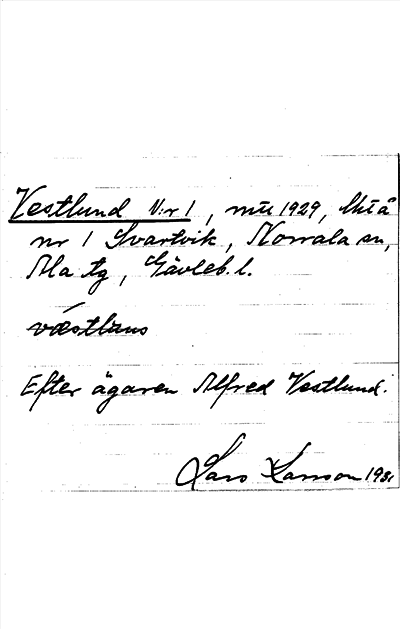 Vestlund N:r 1, mtl 1929, Utiå
nr 1 Svartvik, Norrala sn,
Ala tg, Gävleb. l.
væstluns
Efter ägaren Alfred Vestlund.
Lars Larsson 1931